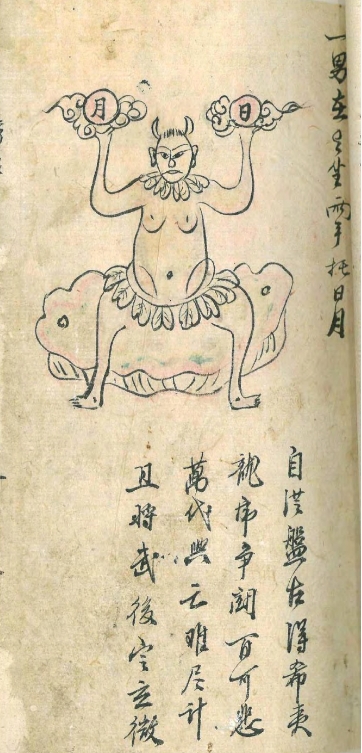 一男在石坐兩手托日月
日
月
自從盤古得希夷
龍虎爭鬪百可悲
萬代興亡難尽計
且將武後定玄微